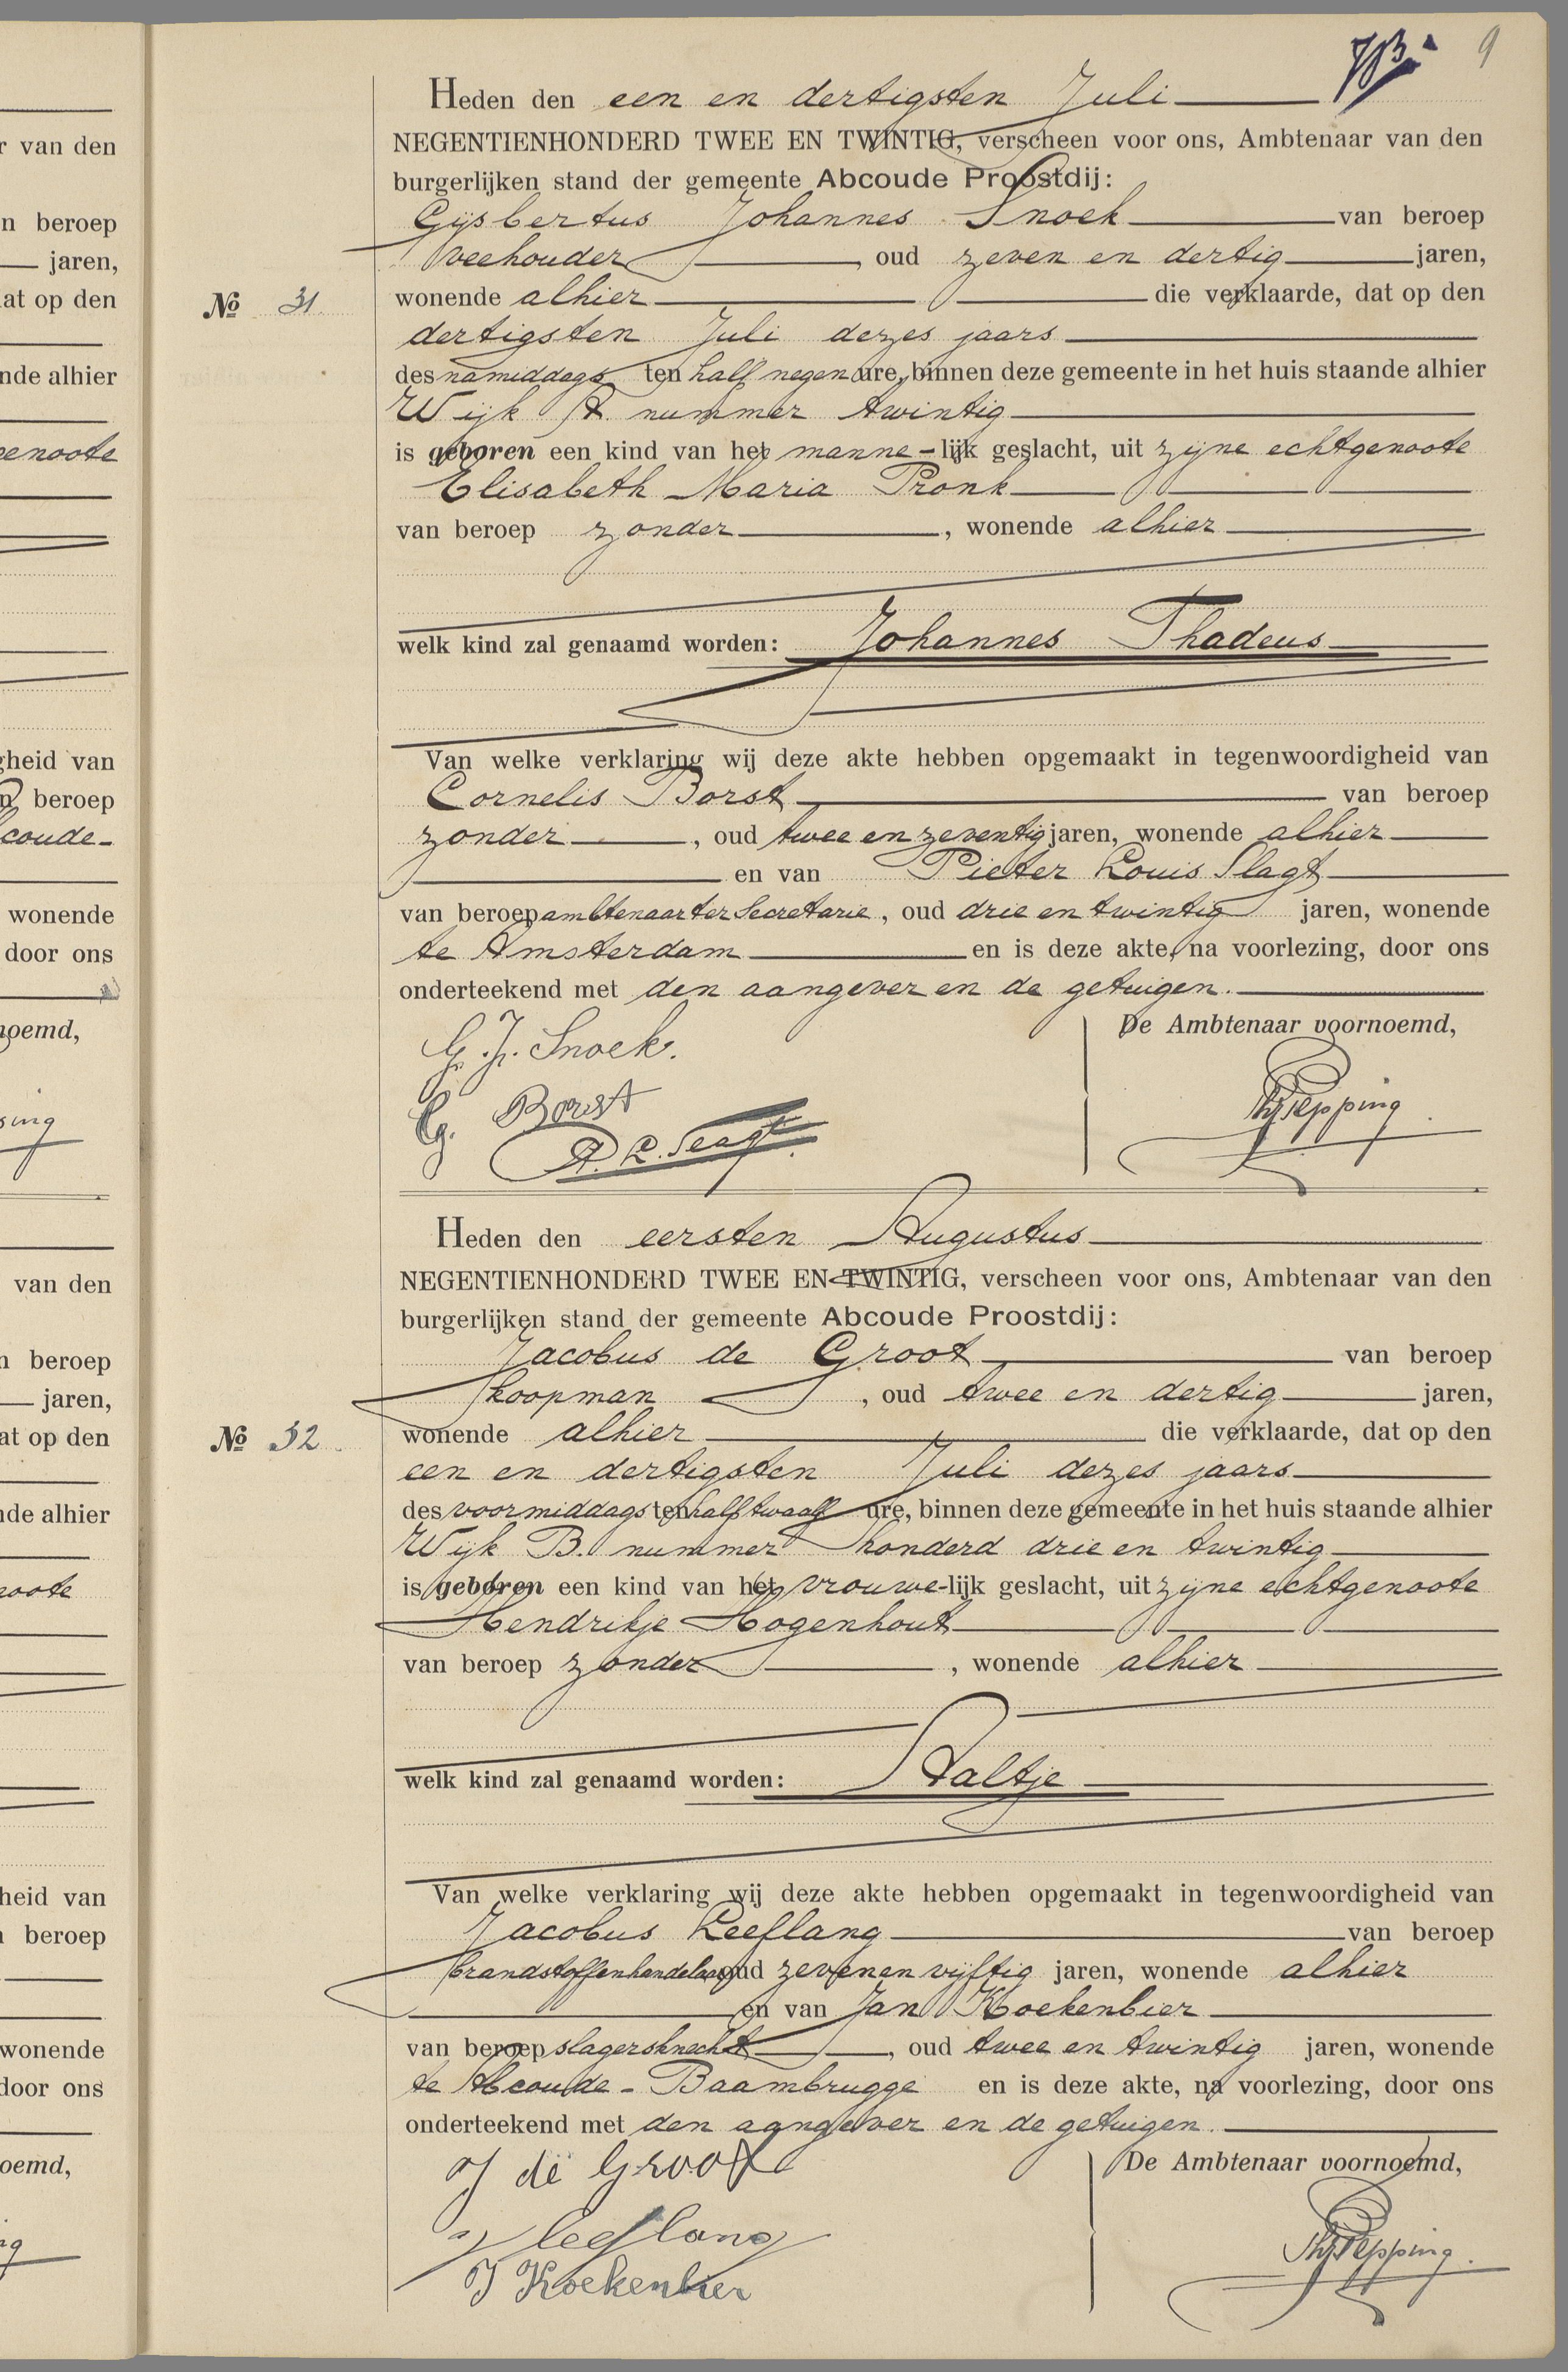 9
Heden den een en dertigsten Juli
NEGENTIENHONDERD TWEE EN TWINTIG, verscheen voor ons, Ambtenaar van den
burgerlijken stand der gemeente Abcoude Proostdij:
Gijsbertus Johannes Snoek van beroep
veehouder, oud zeven en dertig jaren,
No 31
wonende alhier die verklaarde, dat op den
dertigsten Juli dezes jaars
des namiddags ten half negen ure, binnen deze gemeente in het huis staande alhier
Wijk A. nummer twintig
is geboren een kind van het manne-lijk geslacht, uit zijne echtgenoote
Elisabeth Maria Pronk
van beroep zonder, wonende alhier
welk kind zal genaamd worden: Johannes Thadeus
Van welke verklaring wij deze akte hebben opgemaakt in tegenwoordigheid van
Cornelis Borst van beroep
zonder, oud twee en zeventig jaren, wonende alhier
en van Pieter Louis Slagt
van beroep ambtenaar ter Secretarie, oud drie en twintig jaren, wonende
te Amsterdam en is deze akte, na voorlezing, door ons
onderteekend met den aangever en de getuigen.
De Ambtenaar voornoemd,
G. J. Snoek.
C. Borst
P. L. Slagt
Pepping
Heden den eersten Augustus
NEGENTIENHONDERD TWEE EN TWINTIG, verscheen voor ons, Ambtenaar van den
burgerlijken stand der gemeente Abcoude Proostdij:
Jacobus de Groot van beroep
koopman, oud twee en dertig jaren,
No 32
wonende alhier die verklaarde, dat op den
een en dertigsten Juli dezes jaars
des voormiddags ten half twaalf ure, binnen deze gemeente in het huis staande alhier
Wijk B. nummer honderd drie en twintig
is geboren een kind van het vrouwe-lijk geslacht, uit zijne echtgenoote
Hendrikje Hogenhout
van beroep zonder, wonende alhier
welk kind zal genaamd worden: Aaltje
Van welke verklaring wij deze akte hebben opgemaakt in tegenwoordigheid van
Jacobus Leeflang van beroep
brandstoffenhandelaar, oud zeven en vijftig jaren, wonende alhier
en van Jan Koekenbier
van beroep slagersknecht, oud twee en twintig jaren, wonende
te Abcoude-Baambrugge en is deze akte, na voorlezing, door ons
onderteekend met den aangever en de getuigen.
De Ambtenaar voornoemd,
J de Groot
J Leeflang
J Koekenbier
Pepping